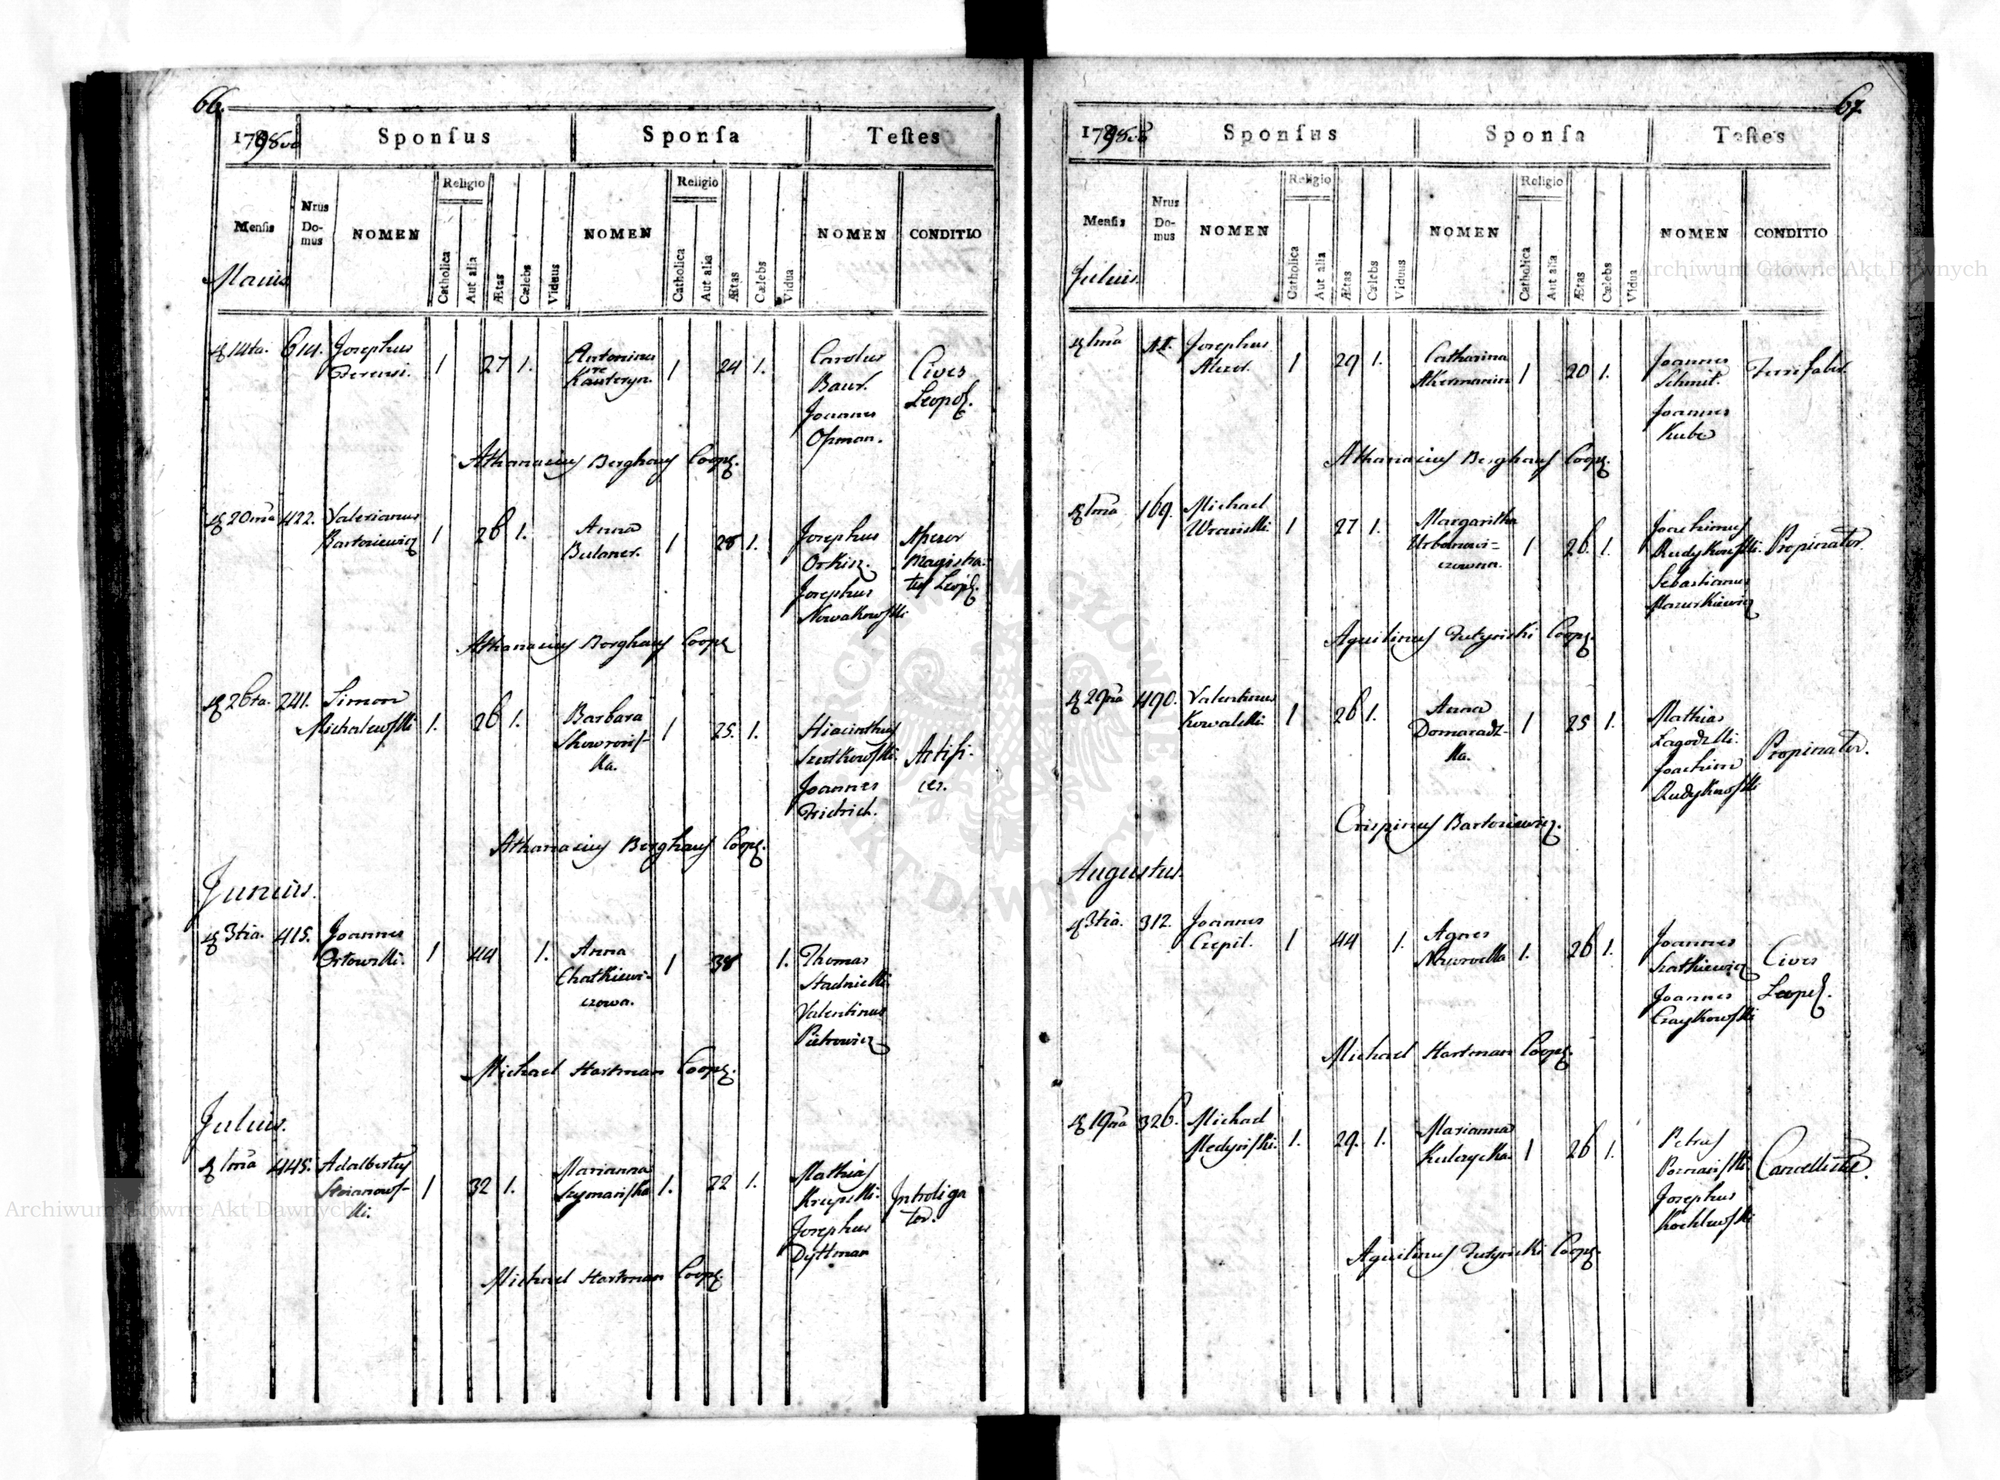 66.
1798vo
Sponſus
Sponſa
Teſtes
Menſis
Nrus Do-mus
NOMEN
Religio
Catholica
Aut alia
Ætas
Cælebs
Viduus
NOMEN
Religio
Catholica
Aut alia
Ætas
Cælebs
Vidua
NOMEN
CONDITIO
Maius
14ta. 614. Josephus 1 27 1. Antonina 1 24 1. Carolus Cives
Baur. Leopol.
Joannes
Opman.
Athanasius Berghauſ Coop.
20ma 422. Valerianus
Bartosiewicz 1 26 1. Anna 1 28 1. Josephus
Josephus
Nowakowſki
Athanasius Berghauſ Coop.
26ta. 241. Simon
Michalewſki 1. 26 1. Barbara 1 25. 1. Hiacinthus
ka. Joannes Artifi-
Fridrich. ces.
Athanasius Berghauſ Coop.
Junius.
3tia. 415. Joannes
Ortowski. 1 44 1. Anna 1 38 1. Thomas
Chatkiewi- Stadnicki.
czowa. Valentinus
Pietrowicz
Michael Hartman Coop.
Julius.
1ma 445. Adalbertus
Stoianowſ- 1 32 1. Marianna 1. 22 1. Mathias
ki. Szymanſka Krupski. Introliga
Josephus tor.
Dyttman
Michael Hartman Coop.
67.
1798vo
Sponſus
Sponſa
Teſtes
Menſis
Nrus Do-mus
NOMEN
Religio
Catholica
Aut alia
Ætas
Cælebs
Viduus
NOMEN
Religio
Catholica
Aut alia
Ætas
Cælebs
Vidua
NOMEN
CONDITIO
Julius.
1ma Josephus 1 29 1. Catharina 1 20 1. Joannes
Akermanin Schmit.
Joannes
Kube
Athanasius Berghauſ Coop.
1ma 169. Michael 1 27 1. Margaritha 1 26 1. Joachimus
Urbanowi= Rudykowſki. Propinator.
czowna. Sebastianus
Mazurkiewicz
Aquilinus Coop.
29na 490. Valentinus 1 26 1. Anna 1 25 1. Mathias
Kowalski. Domaradz- Łagodzki.
ka. Joachim Propinator.
Rudykowſki
Crispinus Bartosiewicz.
Augustus.
3tia. 312. Joannes 1 44 1. Agnes 1. 26 1. Joannes
Czepil. Szatkiewicz Cives
Joannes Leopol.
Czaykowſki
Michael Hartman Coop.
19na 326. Michael 1. 29. 1. Marianna 1 26 1. Petrus
Medynſki. Kulczycka. Poznanſki Cancellistæ.
Josephus
Kochlewſki
Aquilinus Coop.
Archiwum Główne Akt Dawnych
Archiwum Główne Akt Dawnych
ARCHIWUM GŁÓWNE AKT DAWNYCH